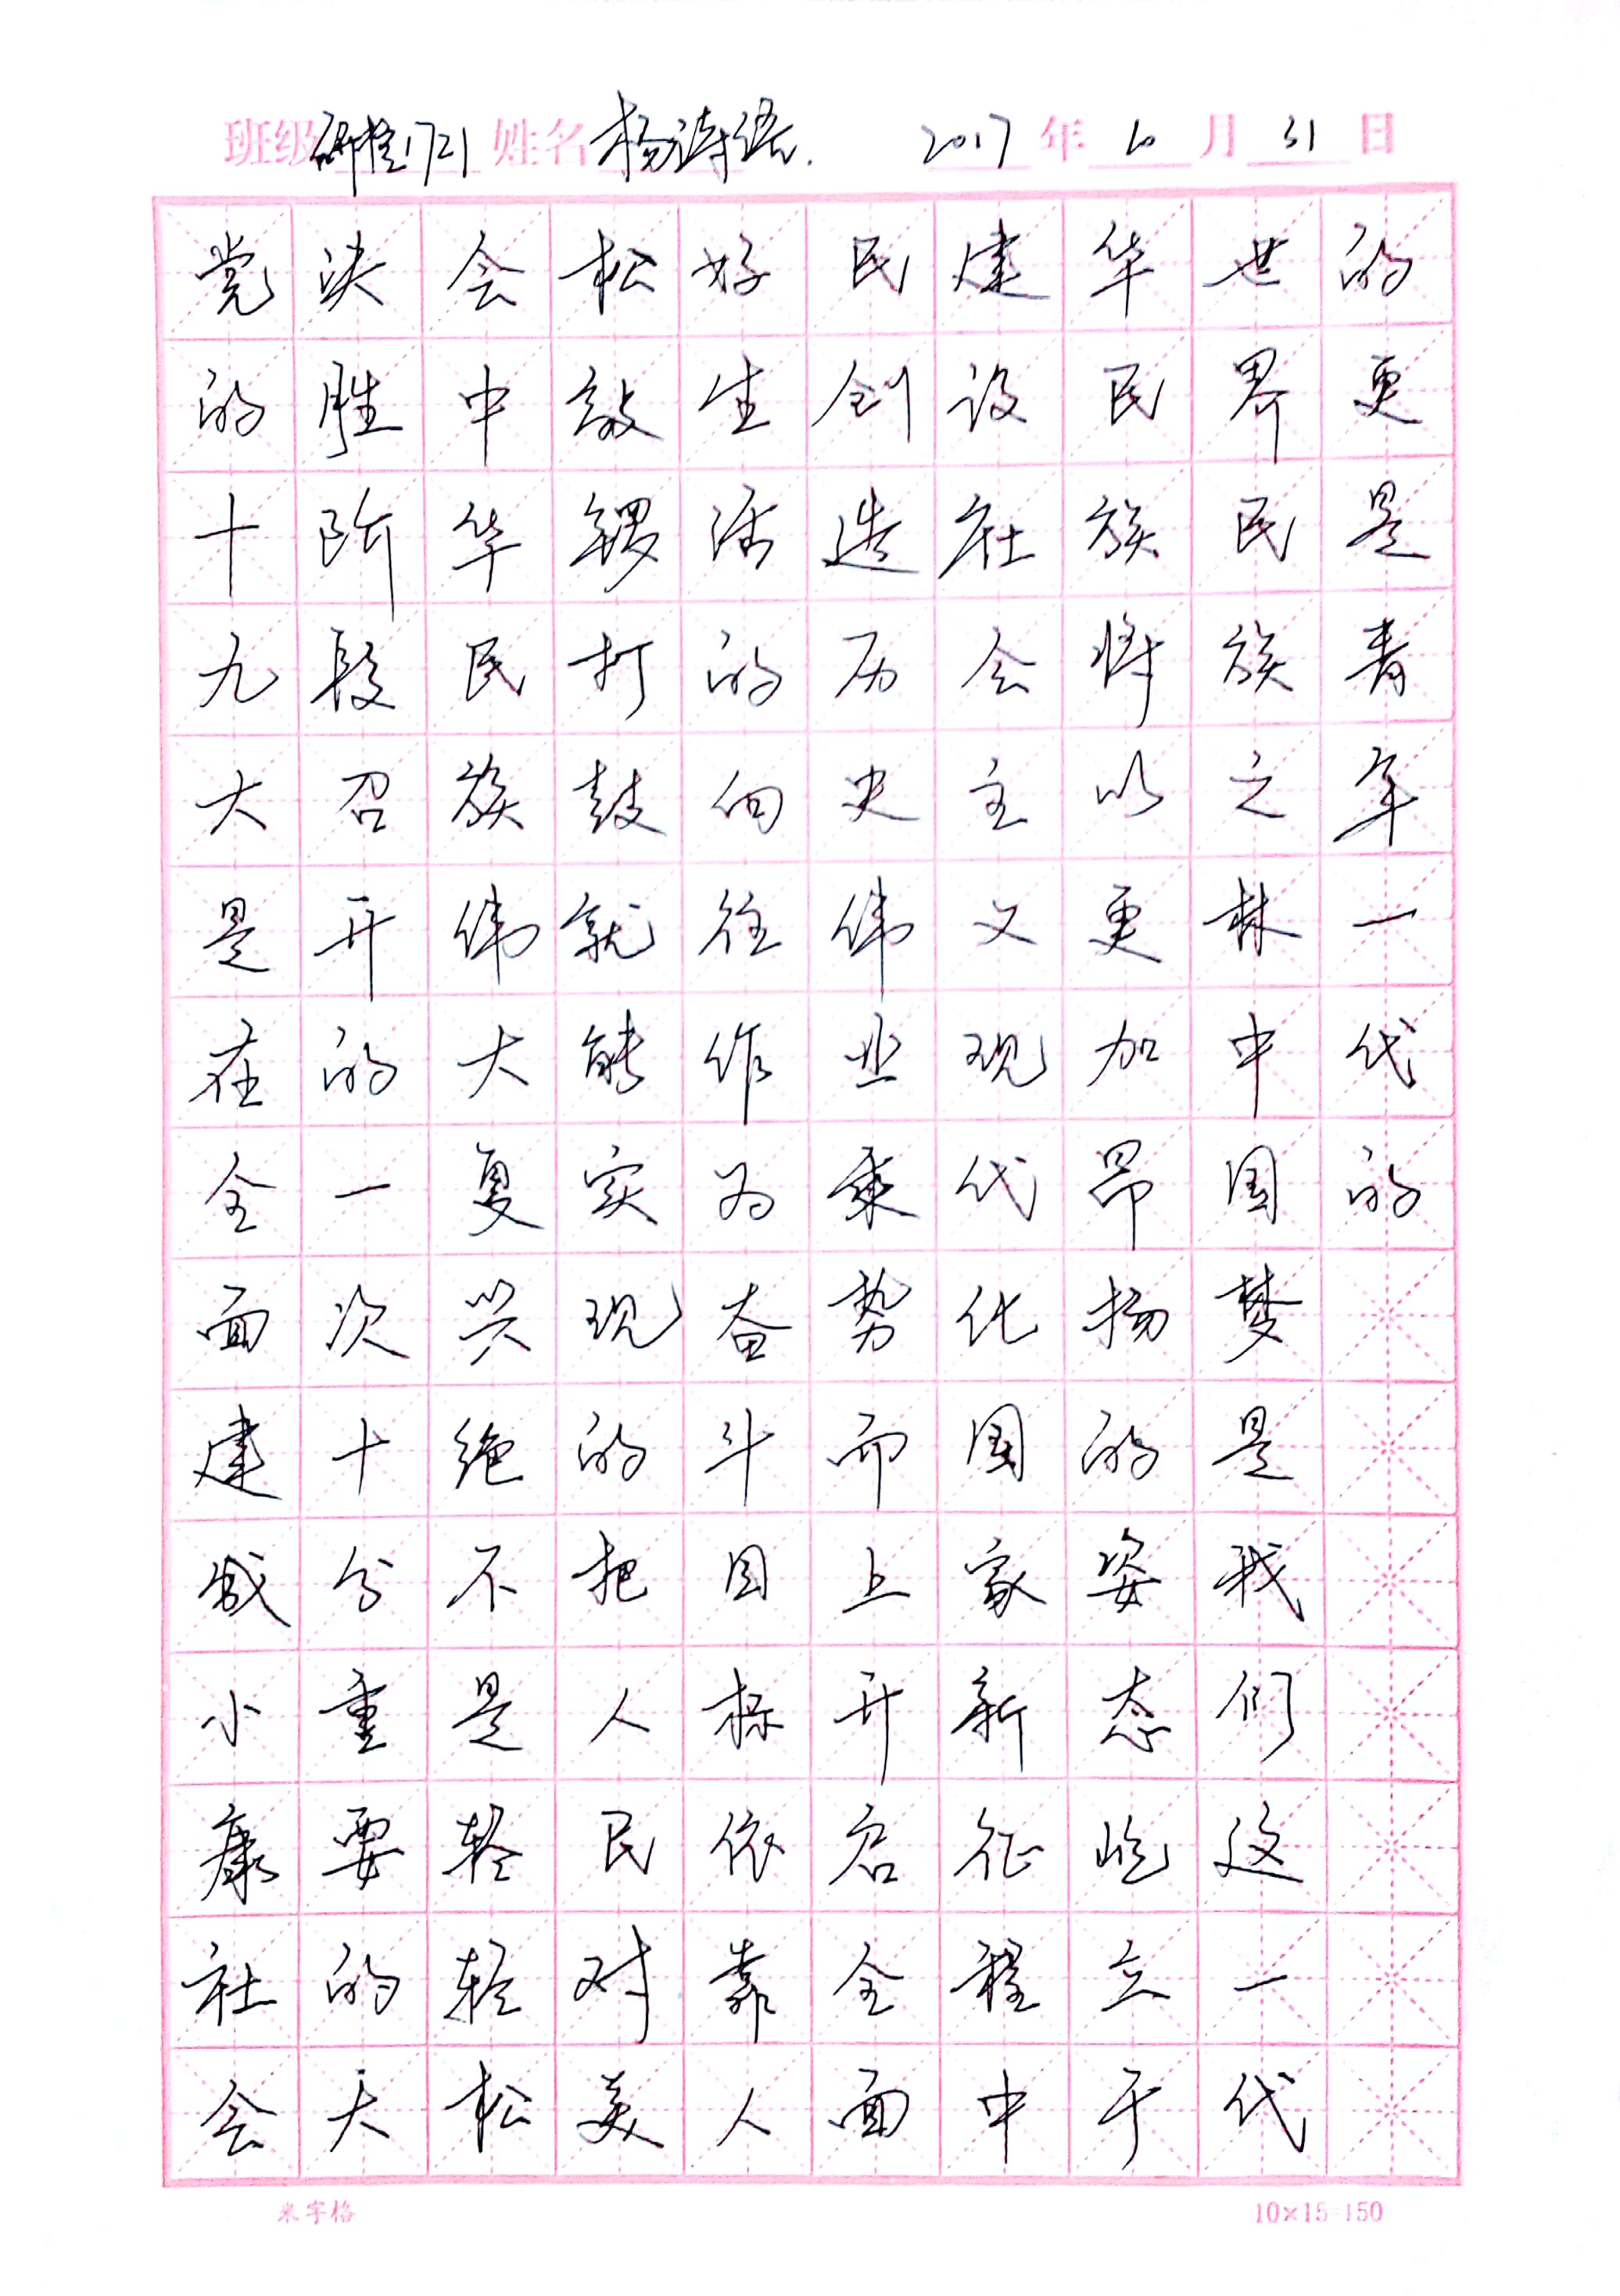 班级研控1721 姓名 杨诗语. 2017 年 10 月 31 日
党的十九大是在全面建成小康社会
决胜阶段召开的一次十分重要的大
会中华民族伟大复兴绝不是轻轻松
松敲锣打鼓就能实现的把人民对美
好生活的向往作为奋斗目标依靠人
民创造历史伟业乘势而上开启全面
建设社会主义现代化国家新征程中
华民族将以更加昂扬的姿态屹立于
世界民族之林中国梦是我们这一代
的更是青年一代的
米字格 10×15=150